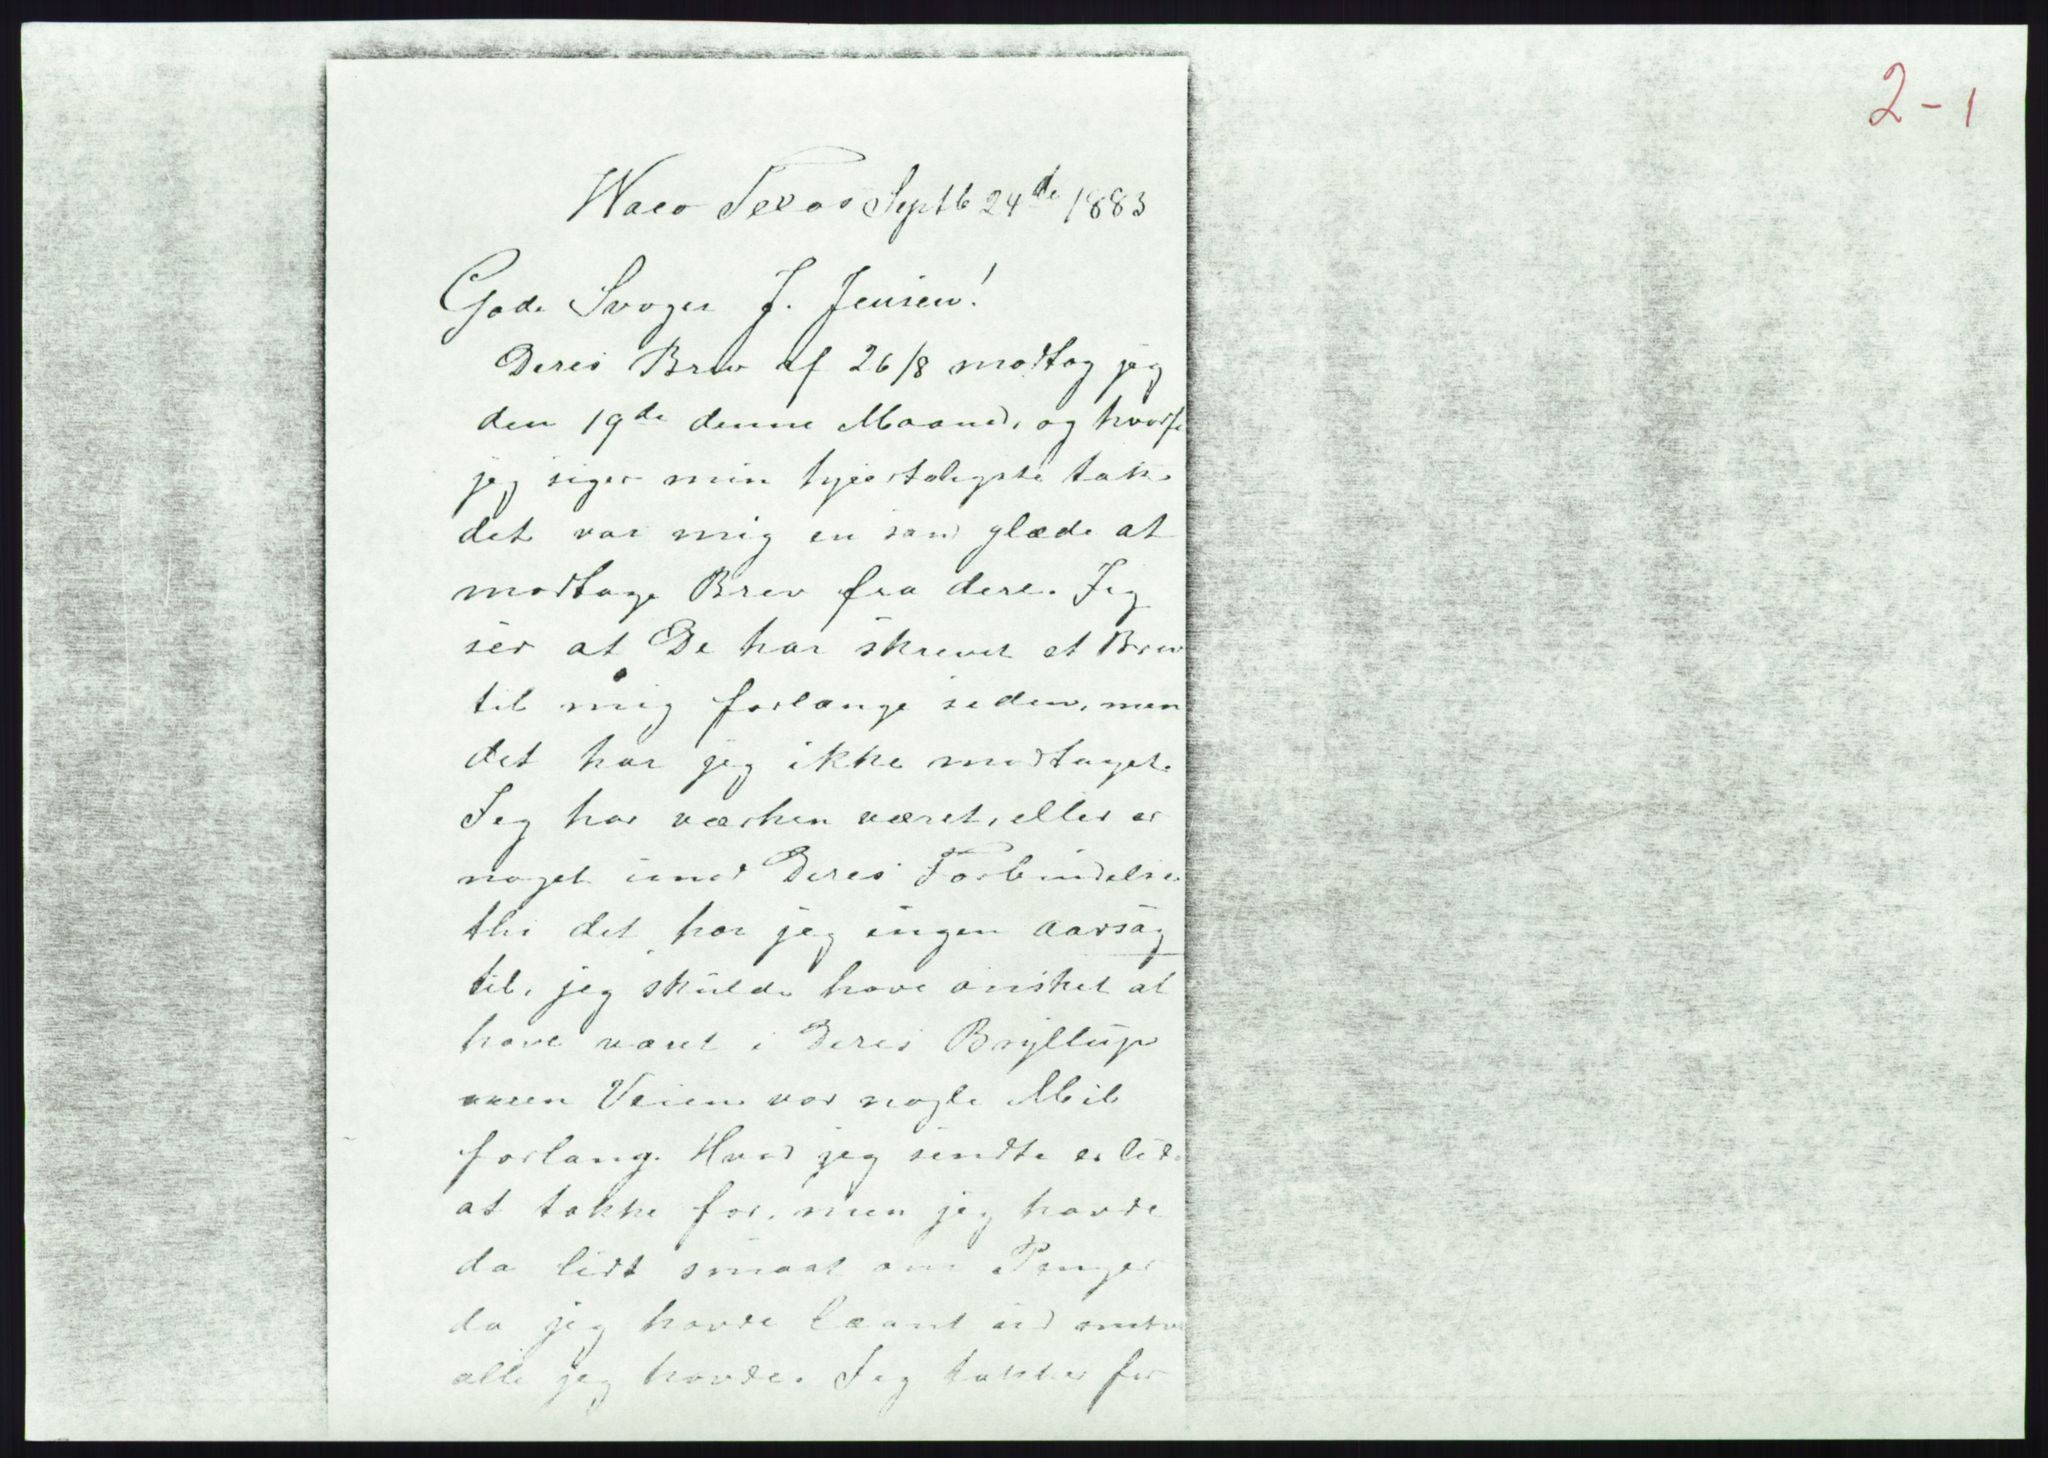 2-1
Waco Texas Septb 24de 1883
Gode Svoger J. Jensen!
Deres Brev af 26/8 modtog jeg
den 19de denne Maaned, og hvorfo
jeg siger min hjærteligste tak.
det var mig en sand glæde at
modtage Brev fra dere. Jeg
ser at De har skrevet et Brev
til mig forlænge siden, men
det har jeg ikke modtaget.
Jeg har værken været, eller er
noget imod Deres Forbindelse
thi det har jeg ingen aarsag
til, jeg skulde have ønsket at
have været i Deres Bryllup
men Veien var nogle Mil
forlang. Hvad jeg sendte er lidt
at takke for, men jeg havde
da lidt smaat om Penger
da jeg havde laant ud omtr
alle jeg havde. Jeg takker for